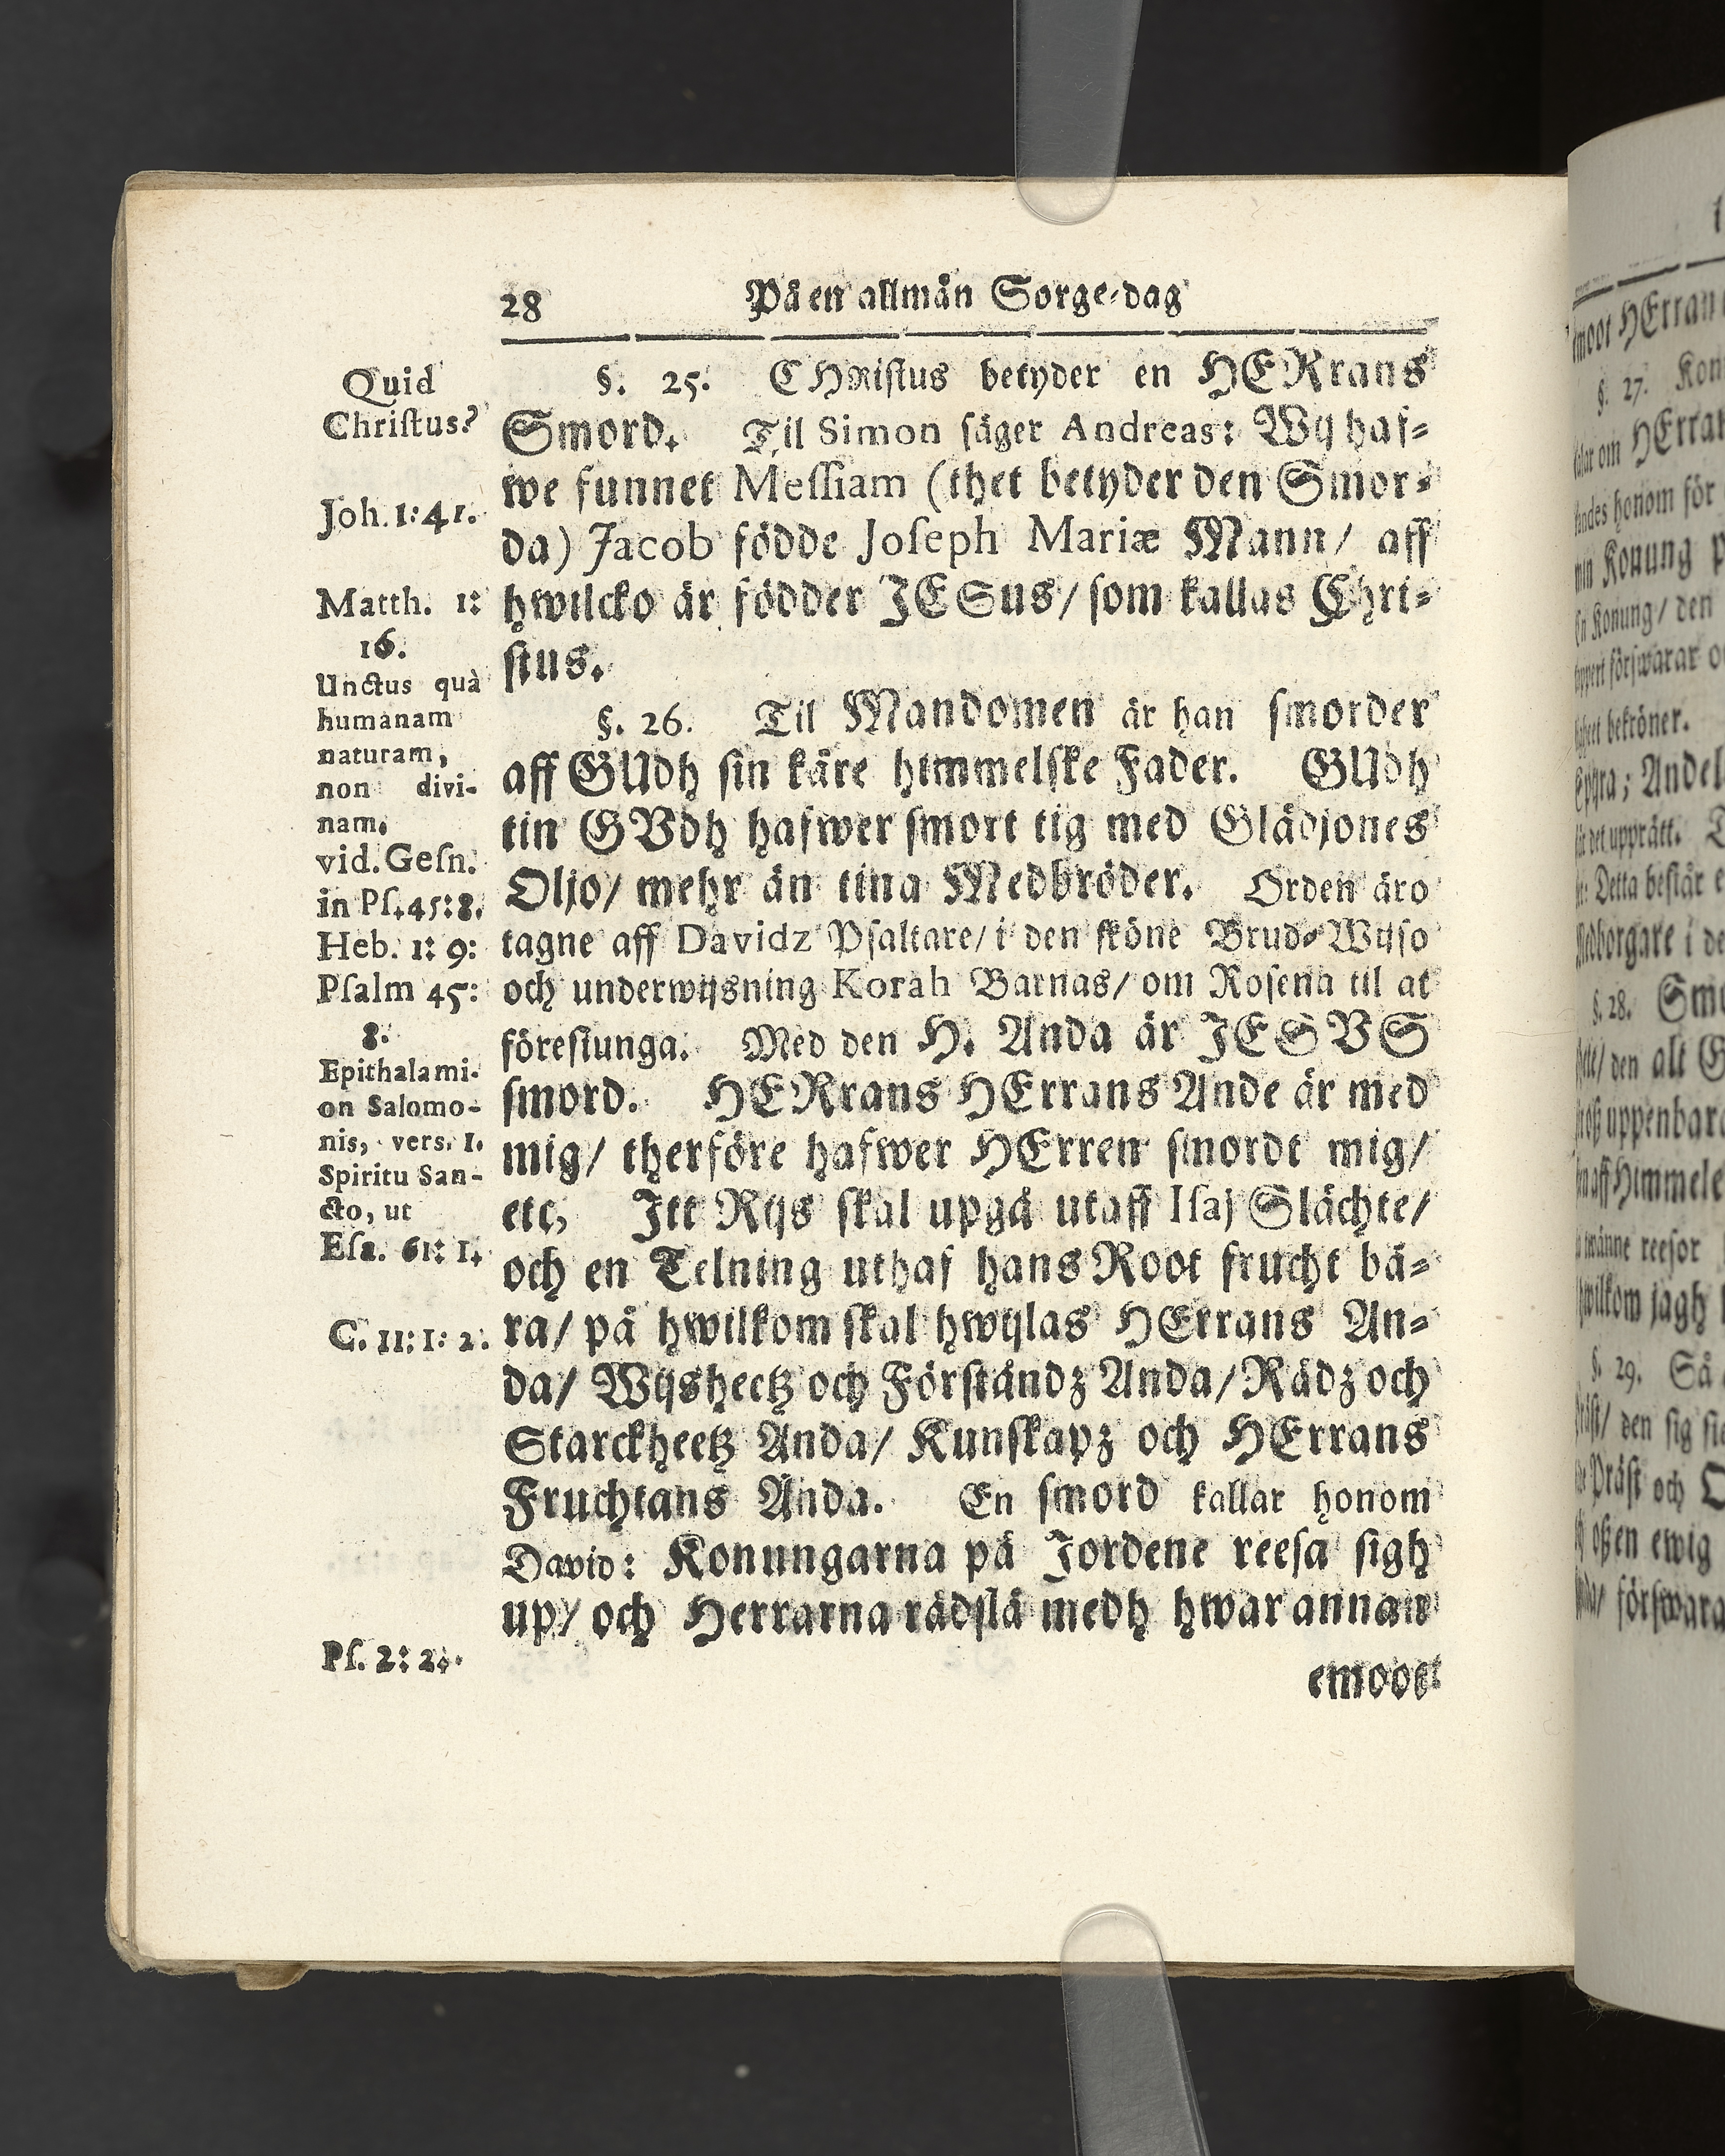 28 På en allmän Sorge-dag
Quid
Christus?
Joh. 1:41.
Matth. 1:
16.
Unctus quà
humanam
naturam,
non divi-
nam.
vid. Gesn.
in Ps. 45:8.
Heb. 1: 9:
Psalm 45:
8.
Epithalami-
on Salomo-
nis, vers. 1.
Spiritu San-
cto, ut
Esa. 61: 1.
C. 11: 1: 2.
Ps. 2: 2.
§. 25. CHristus betyder en HERrans
Smord. Til Simon säger Andreas: Wij haf-
we funnet Messiam (thet betyder den Smor-
da) Jacob födde Joseph Mariæ Mann/ aff
hwilcko är födder JESus/ som kallas Chri-
stus.
§. 26. Til Mandomen är han smorder
aff GUdh sin käre himmelske Fader. GUdh
tin GVdh hafwer smort tig med Glädjones
Oljo/ mehr än tina Medbröder. Orden äro
tagne aff Davidz Psaltare/ i den sköne Brud-Wijso
och underwijsning Korah Barnas/ om Rosena til at
föresiunga. Med den H. Anda är JESVS
smord. HERrans HErrans Ande är med
mig/ therföre hafwer HErren smordt mig/
etc, Itt Rijs skal upgå utaff Isaj Slächte/
och en Telning uthaf hans Root frucht bä-
ra/ på hwilkom skal hwijlas HErrans An-
da/ Wijsheetz och Förståndz Anda/ Rådz och
Starckheetz Anda/ Kunskapz och HErrans
Fruchtans Anda. En smord kallar honom
David: Konungarna på Jordene reesa sigh
up/ och Herrarna rådslå medh hwar annan
emoot
moot HErran
§. 27.
HErran
honom för
Konung
Konung/ den
förswarar
bekröner.
Andel
det upprätt.
Detta består
i de
§. 28.
den alt
uppenbara
aff Himmele
reesor
jagh
§. 29. Så
den sig
Präst och
ewig
förswara